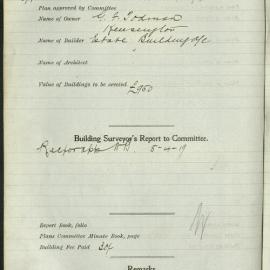 Plan approved by Committee
Name of Owner G. F. Todman
Kensington
Name of Builder Estate Building Co
Name of Architect
Value of Buildings to be erected £950
Building Surveyor's Report to Committee.
5-4-19
Report Book, folio
Plans Committee Minute Book, page
Building Fee Paid 30/-
Remarks